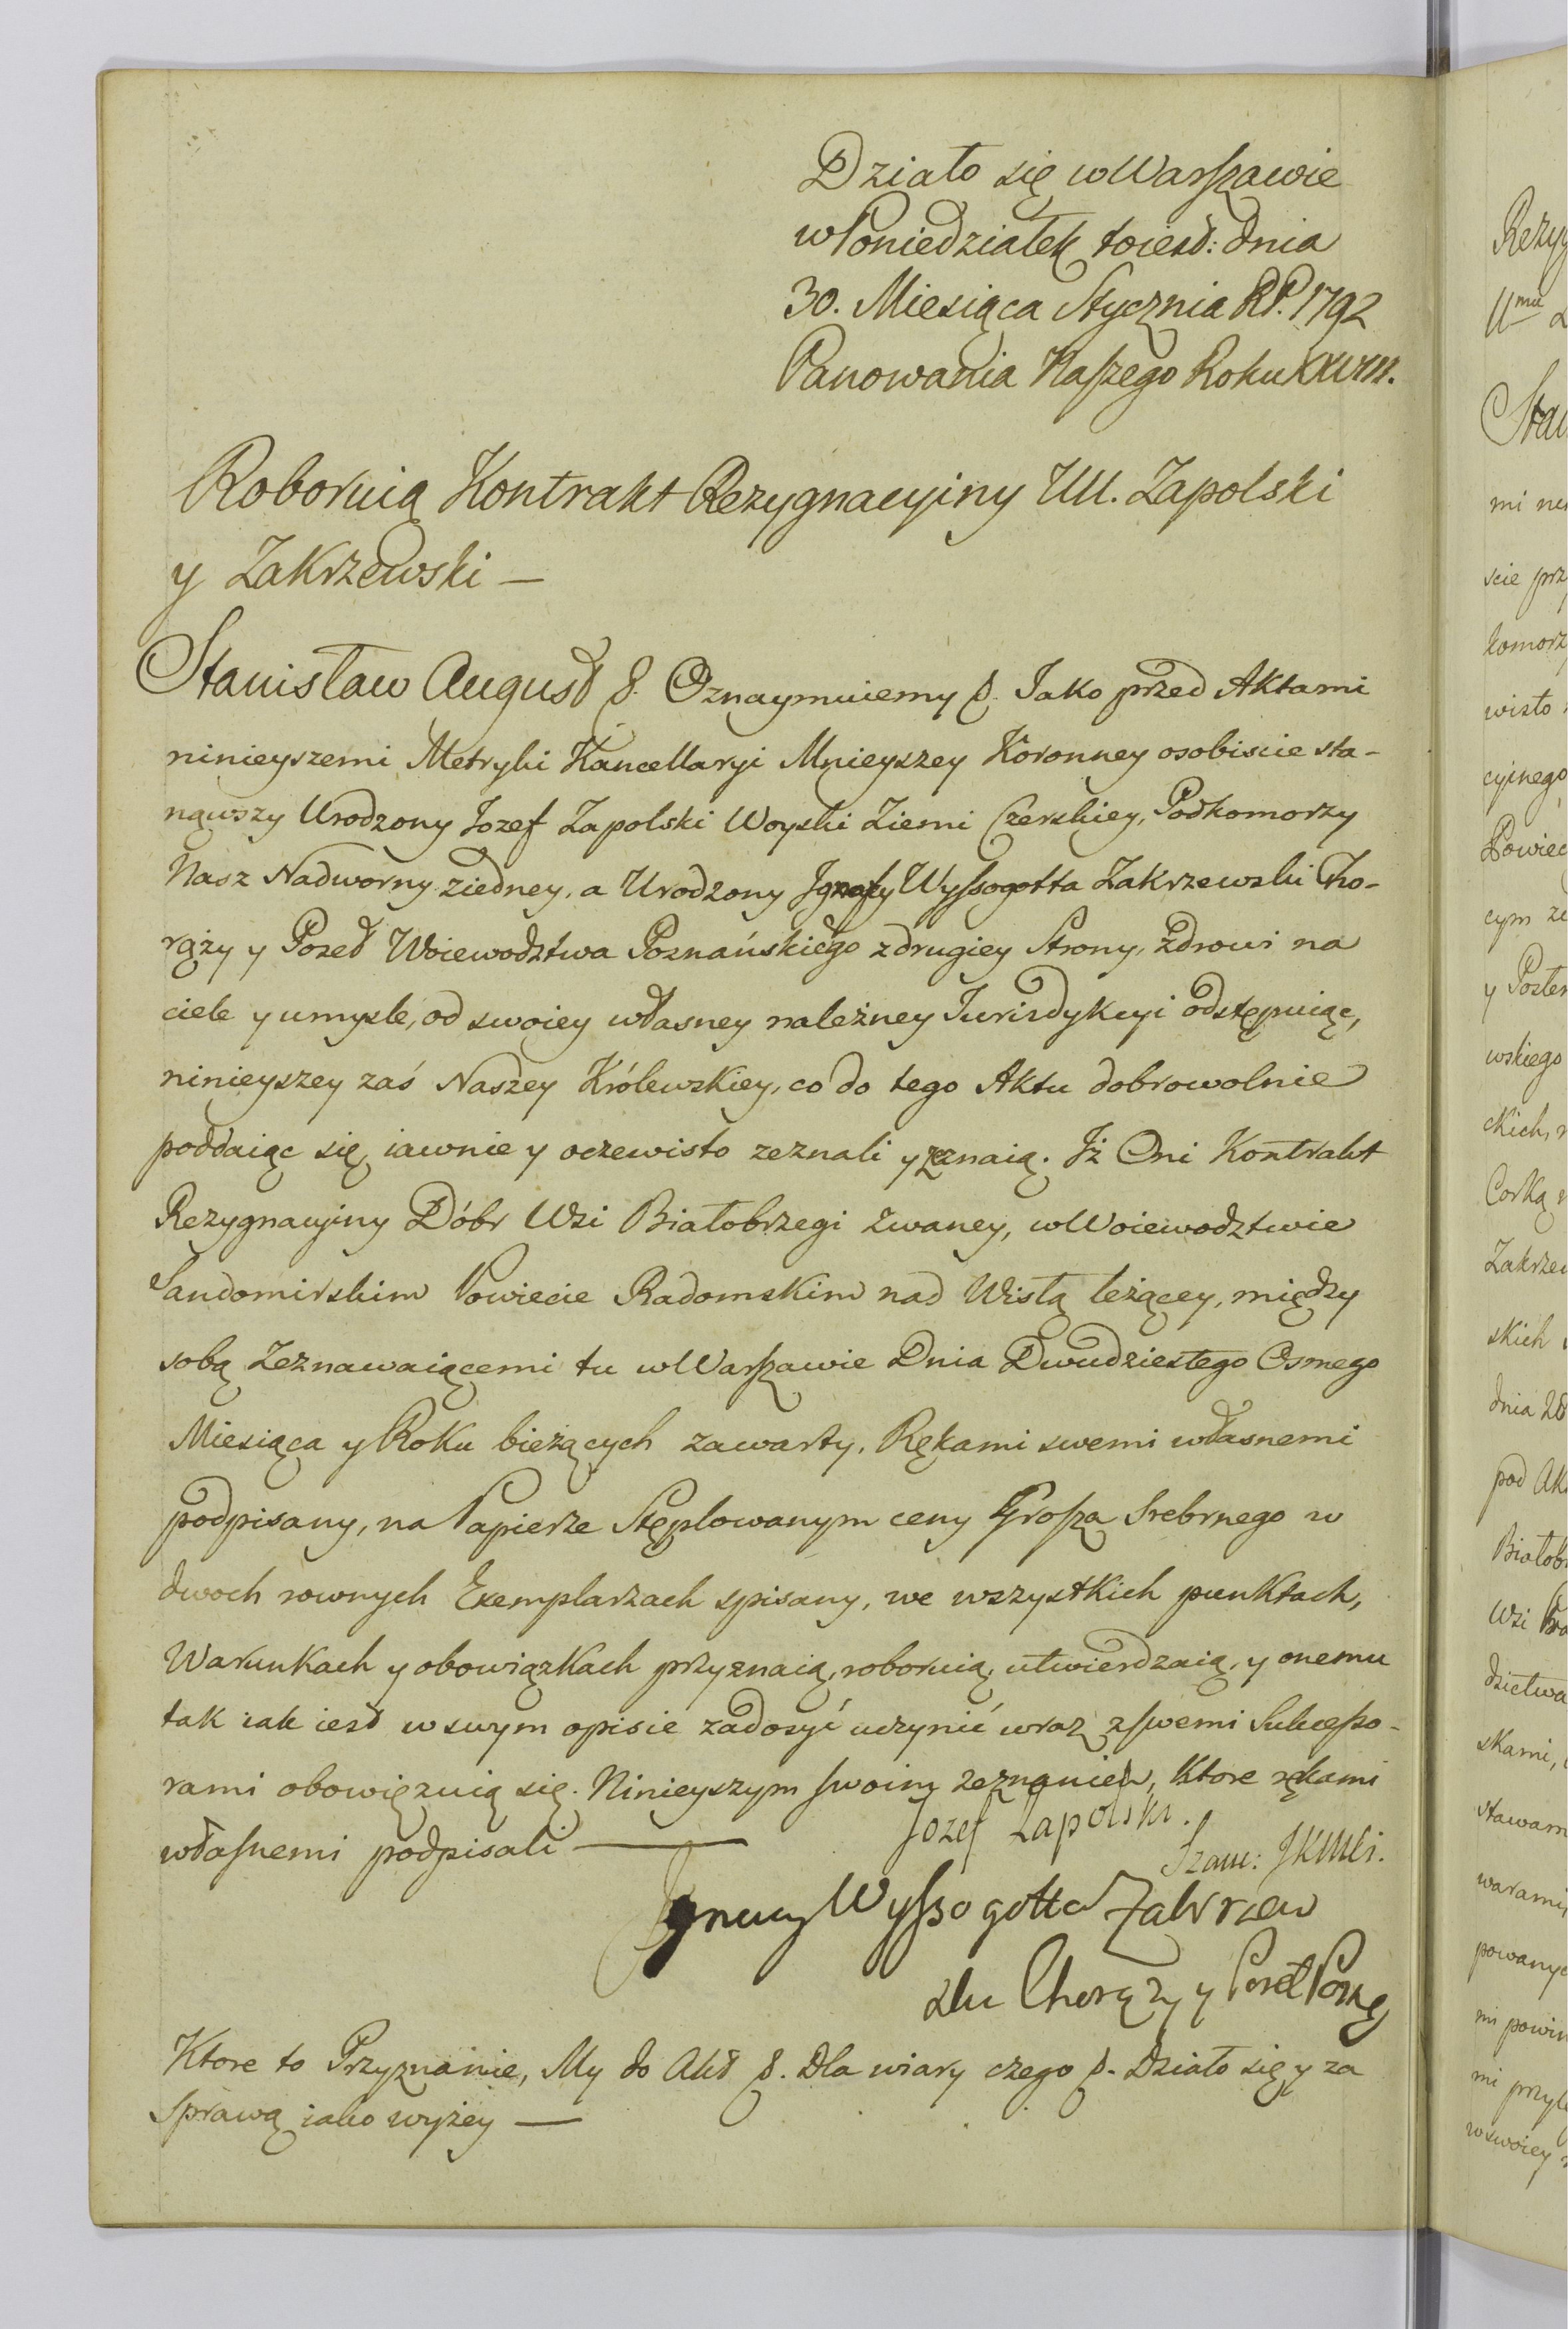 Działo się w Warszawie
w Poniedziałek to iest: dnia
30. Miesiąca Stycznia R.P. 1792
Panowania Naszego Roku XXVIII.
Roboruią Kontrakt Rezygnacyiny UU. Zapolski
y Zakrzewski —
Stanisław August &. Oznaymuiemy &. Jako przed Aktami
ninieyszemi Metryki Kancellaryi Mnieyszey Koronney osobiscie sta-
nąwszy Urodzony Jozef Zapolski Woyski Ziemi Czerskiey, Podkomorzy
Nasz Nadworny z iedney, a Urodzony Ignacy Wyssogotta Zakrzewski Cho-
rąży y Poseł Woiewodztwa Poznańskiego z drugiey Strony, zdrowi na
ciele y umysle, od swoiey własney należney Jurisdykcyi odstępuiąc,
ninieyszey zaś Naszey Królewskiey, co do tego Aktu dobrowolnie
poddaiąc się, iawnie y oczewisto zeznali y zeznaią. Iż Oni Kontrakt
Rezygnacyiny Dóbr Wsi Białobrzegi zwaney, w Woiewodztwie
Sandomirskim Powiecie Radomskim nad Wisłą leżącey, między
sobą Zeznawaiącemi tu w Warszawie Dnia Dwudziestego Osmego
Miesiąca y Roku bieżących zawarty, Rękami swemi własnemi
podpisany, na Papierze Stęplowanym ceny Grosza Srebrnego w
dwoch rownych Exemplarzach spisany, we wszystkich punktach,
Warunkach y obowiązkach przyznaią, roboruią, utwierdzaią, y onemu
tak iak iest w swym opisie zadosyć uczynić wraz z swemi Sukcesso-
rami obowięzuią się. Ninieyszym swoim zeznaniem, Ktore rękami
własnemi podpisali —
Jozef Zapolski.
Szam: JKMci.
Ignacy Wyssogotta Zakrzew
ski Chorąży y Poseł Pozng
Ktore to Przyznanie, My do Akt &. Dla wiary czego &. Działo się y za
Sprawą iako wyżey —
Rezyg
Stan
scie prz
wisto
cyinego
Powiec
wskiego
ckich,
Corką
Zakrzew
skich
dnia 28
pod Ak
Białob
Wsi
dzictwa
skami,
stawam
warami,
powanyc
mi powin
mi przyle
w swoiey